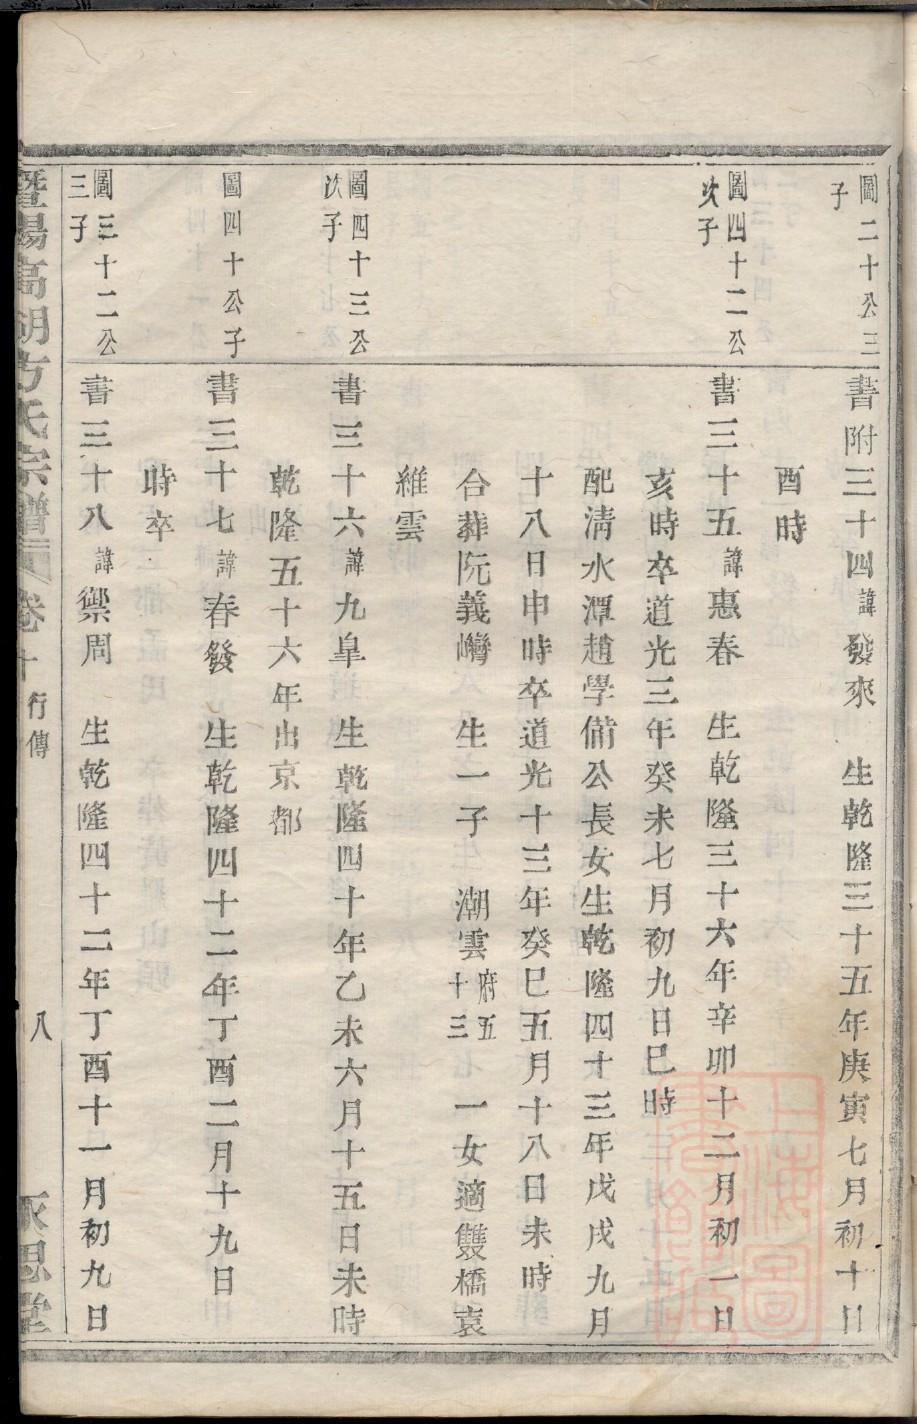 圖二十公三
子
書附三十四諱發來　生乾隆三十五年庚寅七月初十日
酉時
圖四十二公
次子
書三十五諱惠春　生乾隆三十六年辛卯十二月初一日
亥時卒道光三年癸未七月初九日巳時
配清水潭趙學備公長女生乾隆四十三年戊戌九月
十八日申時卒道光十三年癸巳五月十八日未時
合葬阮義灣　生一子　潮雲府五十三　一女適雙橋袁
維雲
圖四十三公
次子
書三十六諱九皐　生乾隆四十年乙未六月十五日未時
乾隆五十六年出京都
圖四十公子
書三十七諱春發　生乾隆四十二年丁酉二月十九日
時卒
圖三十二公
三子
書三十八諱禦周　生乾隆四十二年丁酉十一月初九日
暨陽高湖方氏宗譜　卷十　行傳　八　永思堂